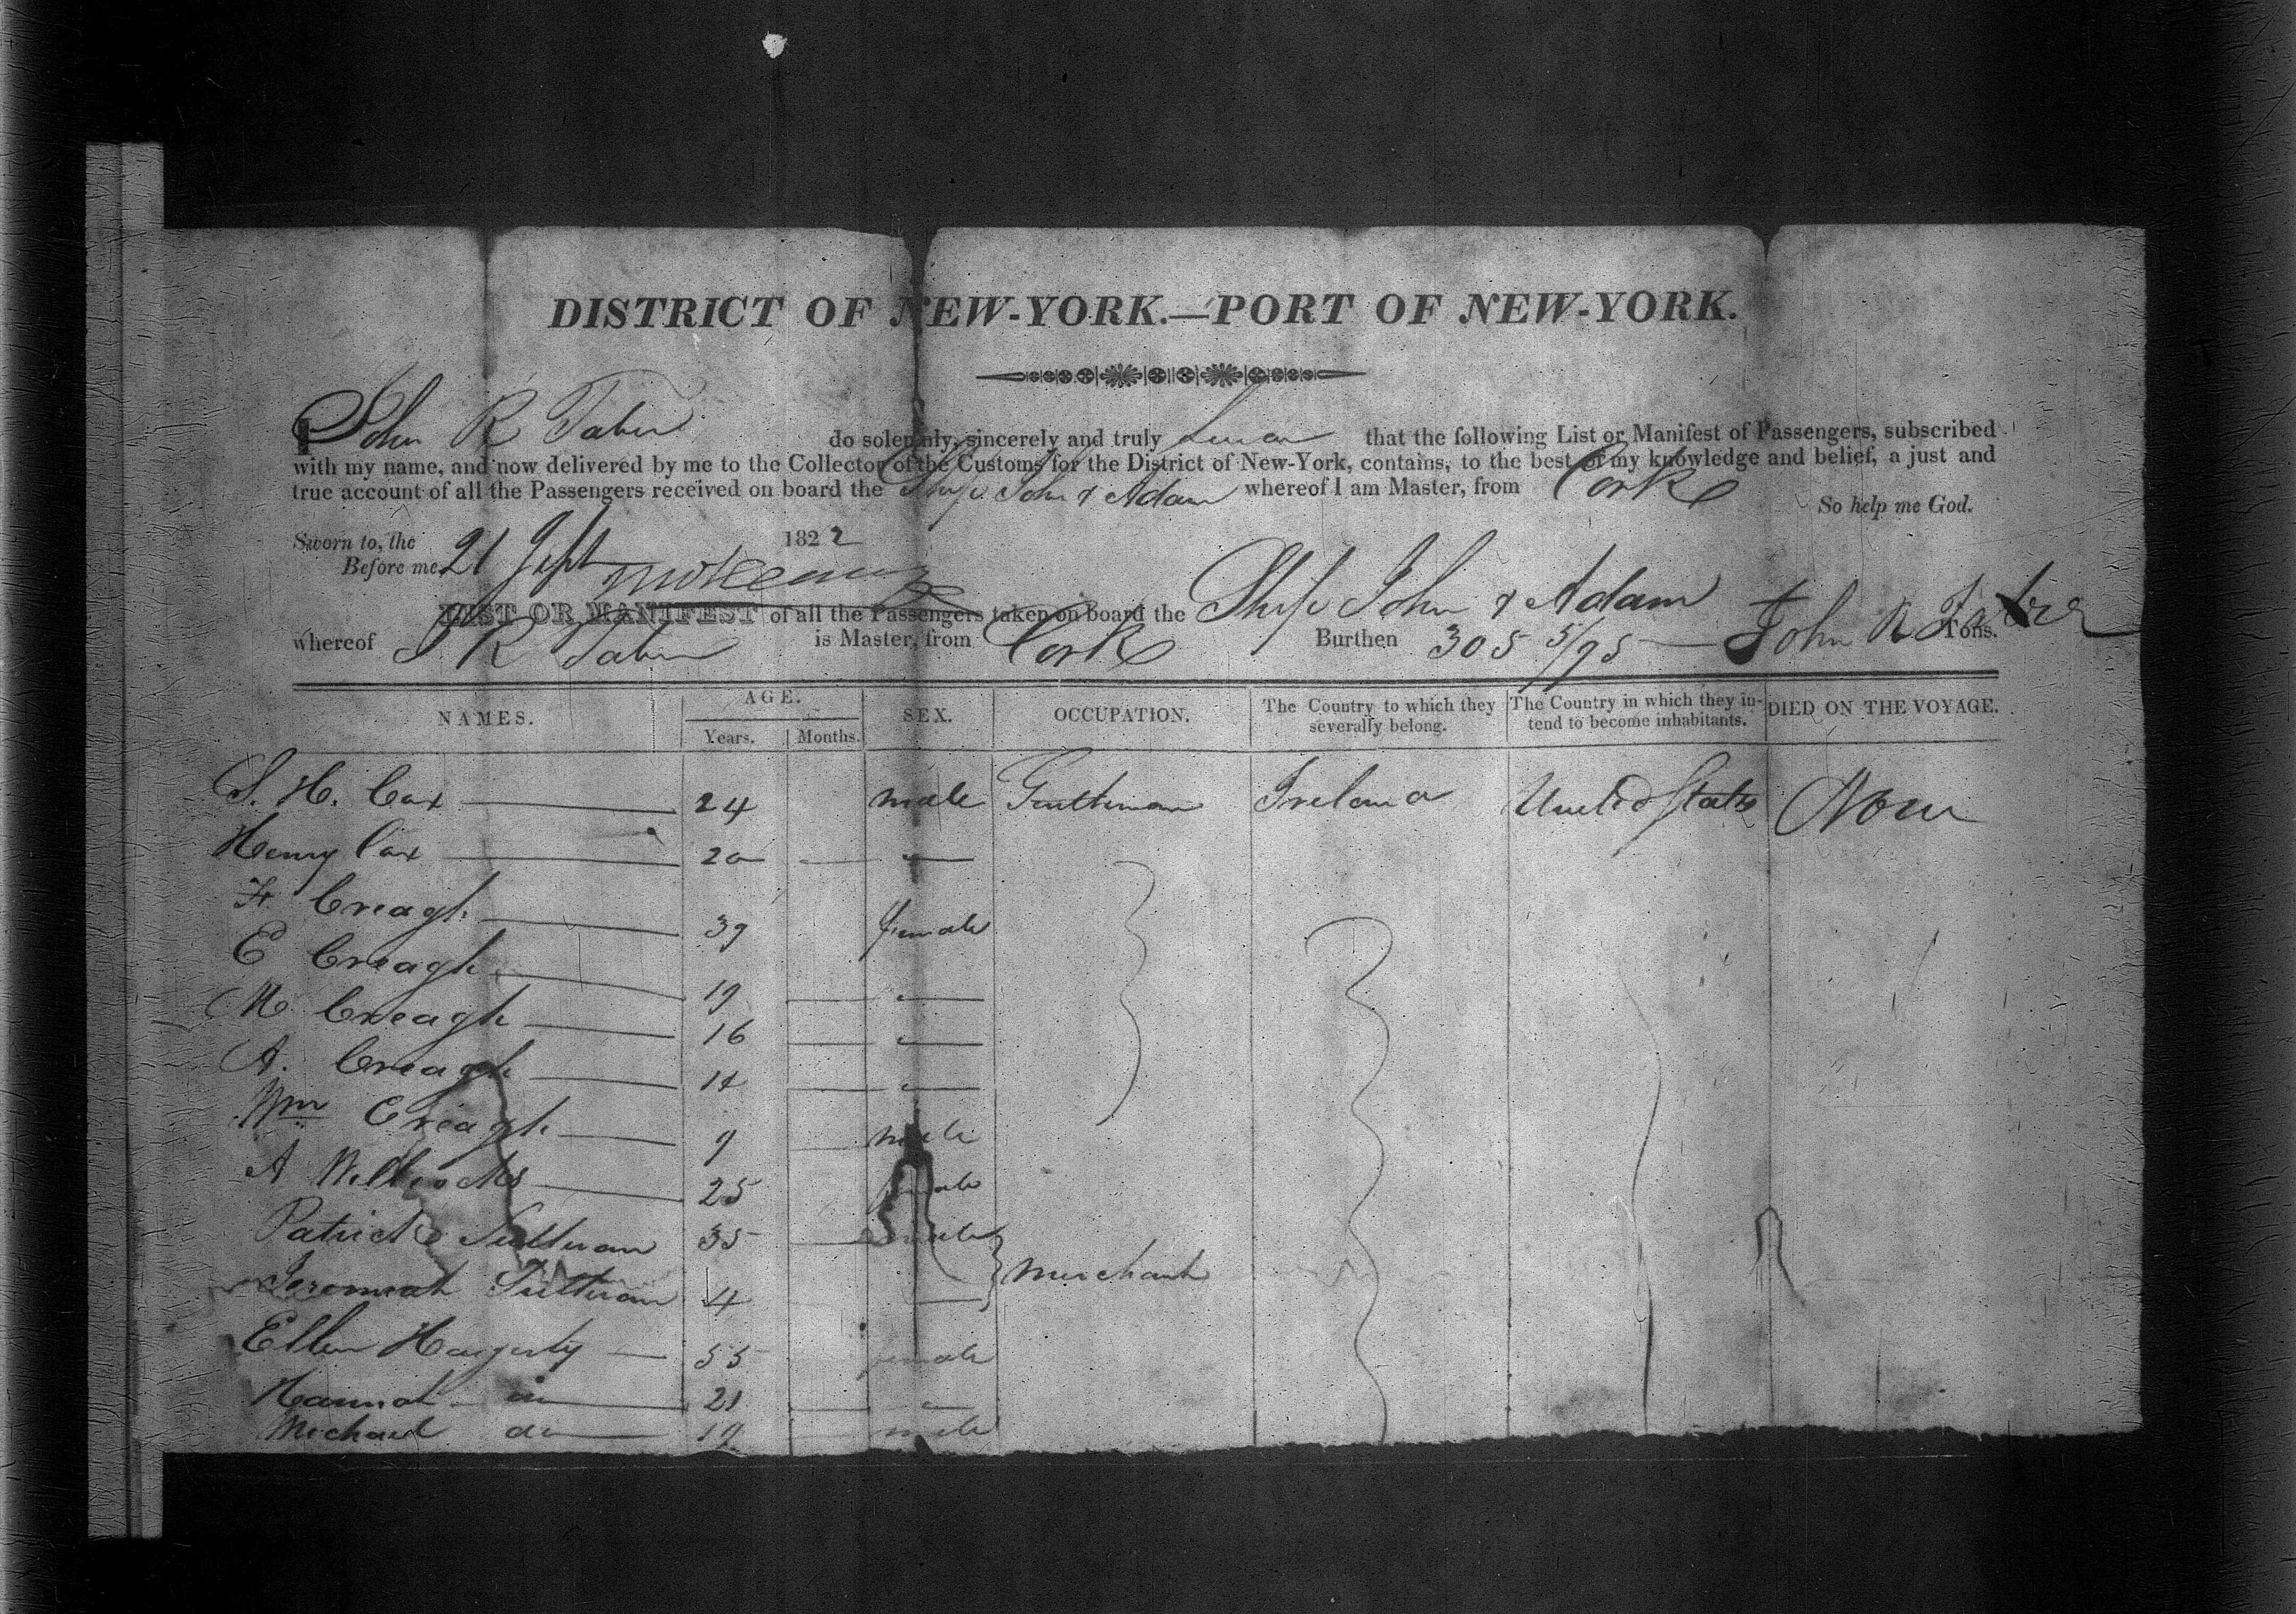 DISTRICT OF NEW-YORK.—PORT OF NEW-YORK.
I John R Taber do solemnly, sincerely and truly swear that the following List or Manifest of Passengers, subscribed
with my name, and now delivered by me to the Collector of the Customs for the District of New-York, contains, to the best of my knowledge and belief, a just and
true account of all the Passengers received on board the Ship John & Adam whereof I am Master, from Cork
So help me God.
Sworn to, the 21 Sept 1822
Before me
John R Taber
LIST OR MANIFEST of all the Passengers taken on board the Ship John & Adam
whereof J R Taber is Master, from Cork Burthen 305 5/95 Tons.
NAMES. AGE. SEX. OCCUPATION. The Country to which they severally belong. The Country in which they intend to become inhabitants. DIED ON THE VOYAGE.
Years. Months.
S. H. Cox 24 male Gentleman Ireland United States None
Henry Cox 20 —
F. Creagh 39 female
E Creagh 19 —
M Creagh 16 —
A. Creagh 14 —
Wm Creagh 9 male
A Willcocks 25 female
Patrick Sullivan 35 male
Jeremiah Sullivan 4 — Merchant
Ellen Hagerty 55 female
Hannah do 21 —
Michael do 19 male